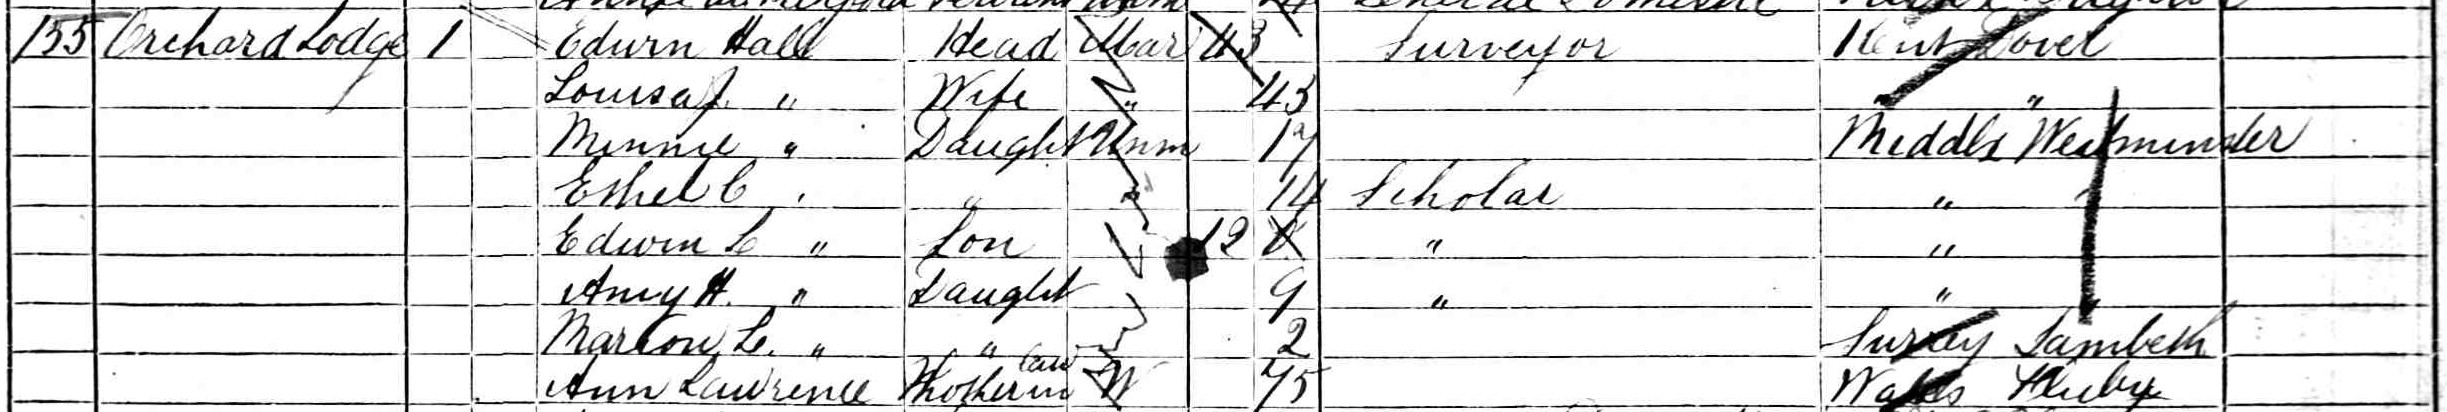 155 Orchard Lodge 1 Edwin Hall Head Mar 43 Surveyor Kent Dover
Louisa J. " Wife " 43 "
Minnie " Daught Unm 17 Middlx Westminster
Ethel C " " " 14 Scholar "
Edwin L " Son 12 " "
Amy H. " Daught 9 " "
Marion L. " " 2 Surrey Lambeth
Ann Lawrence Mother in law W 75 Wales